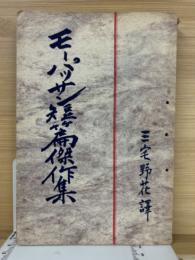 モーパッサン短篇傑作集
三宅野花譯